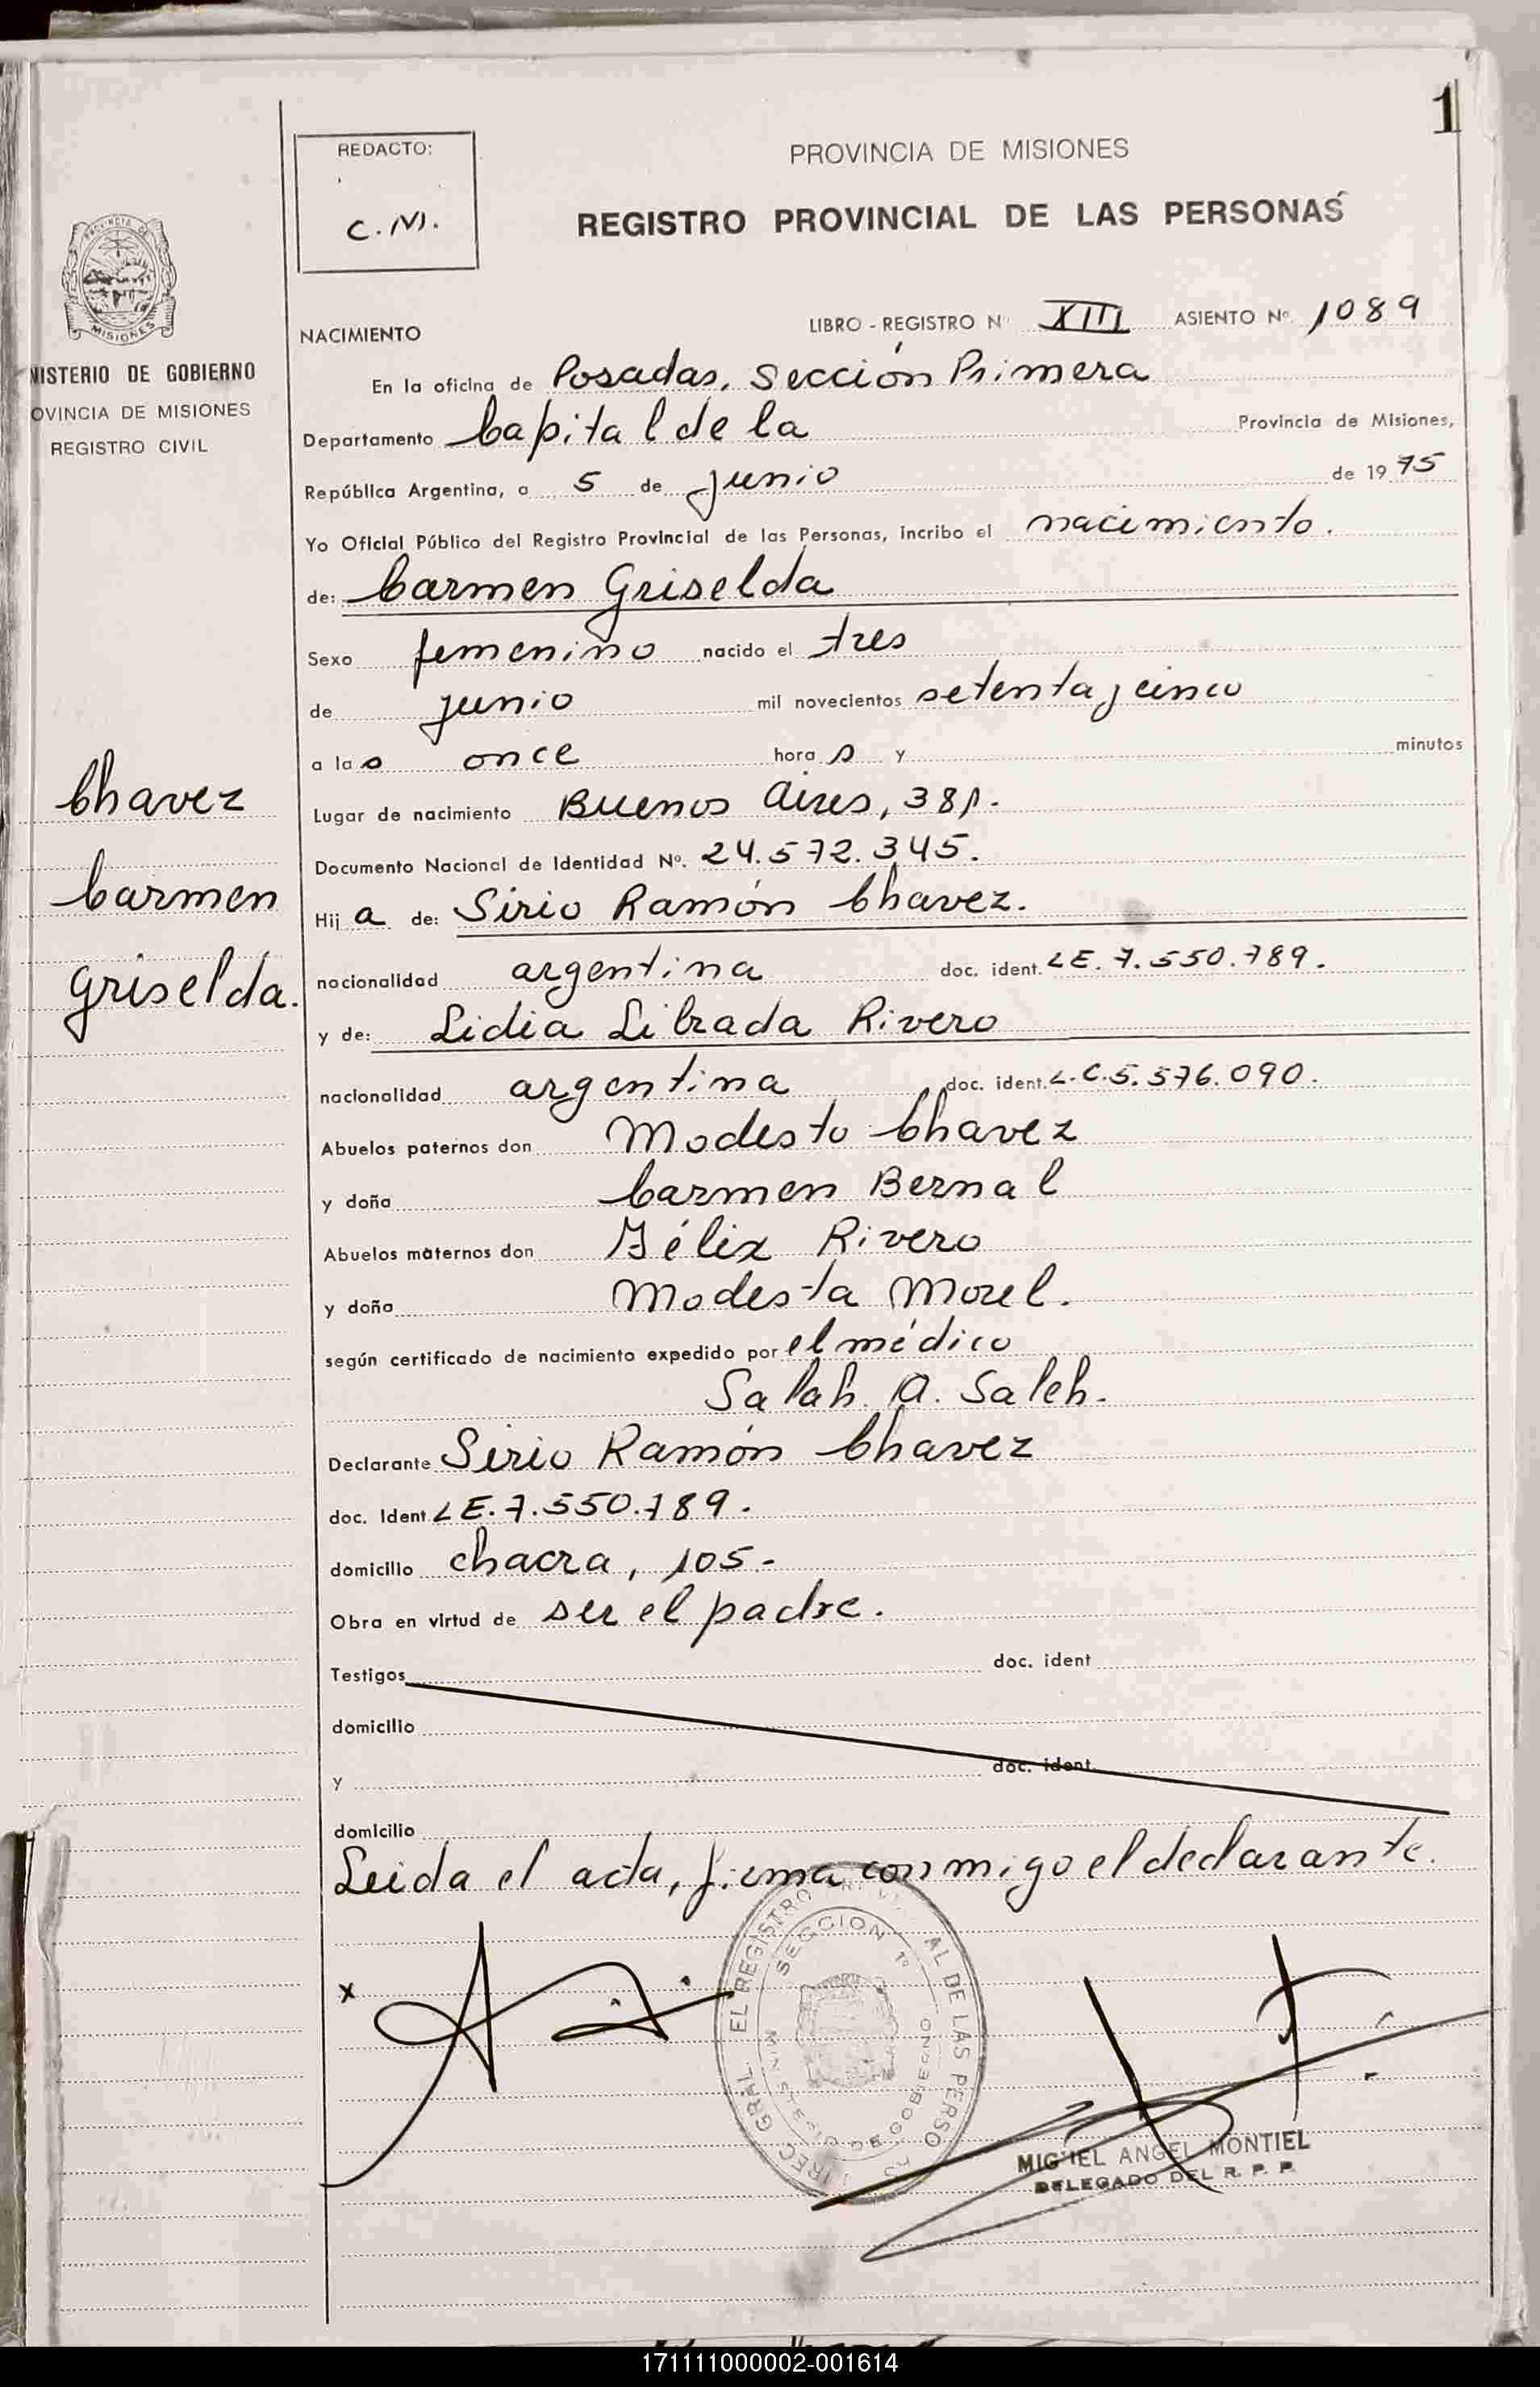 1
REDACTO:
C.M.
PROVINCIA DE MISIONES
REGISTRO PROVINCIAL DE LAS PERSONAS
MISIONES
NISTERIO DE GOBIERNO
OVINCIA DE MISIONES
REGISTRO CIVIL
NACIMIENTO
LIBRO - REGISTRO Nº XIII ASIENTO Nº 1089
En la oficina de Posadas, Sección Primera
Departamento Capital de la Provincia de Misiones,
República Argentina, a 5 de junio de 1975
Yo Oficial Público del Registro Provincial de las Personas, incribo el nacimiento.
de: Carmen Griselda
Sexo femenino nacido el tres
de junio mil novecientos setenta y cinco
a las once horas y minutos
Lugar de nacimiento Buenos Aires, 381.
Documento Nacional de Identidad Nº. 24.572.345.
Chavez
Carmen
Griselda.
Hija de: Sirio Ramón Chavez.
nacionalidad argentina doc. ident. LE. 7.550.789.
y de: Lidia Librada Rivero
nacionalidad argentina doc. ident. L.C.5.576.090.
Abuelos paternos don Modesto Chavez
y doña Carmen Bernal
Abuelos maternos don Félix Rivero
y doña Modesta Morel.
según certificado de nacimiento expedido por el médico
Salah. A. Saleh.
Declarante Sirio Ramón Chavez
doc. Ident LE. 7.550.789.
domicilio chacra, 105.-
Obra en virtud de ser el padre.
Testigos doc. ident
domicilio
y doc. ident.
domicilio
Leida el acta, firma conmigo el declarante.
x
SECCION 1º
MINISTERIO DE GOBIERNO
MIGUEL ANGEL MONTIEL
DELEGADO DEL R. P. P.
171111000002-001614